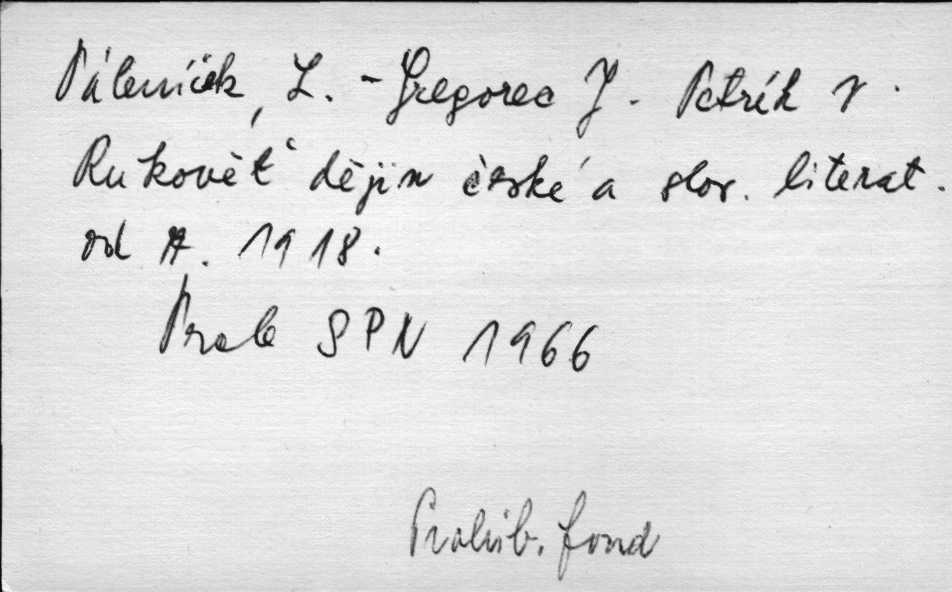 Páleníček, L. - Gregorec J. Petrík V.
Rukověť dějin české a slov. literat.
od r. 1918.
Praha SPN 1966
Prohib. fond